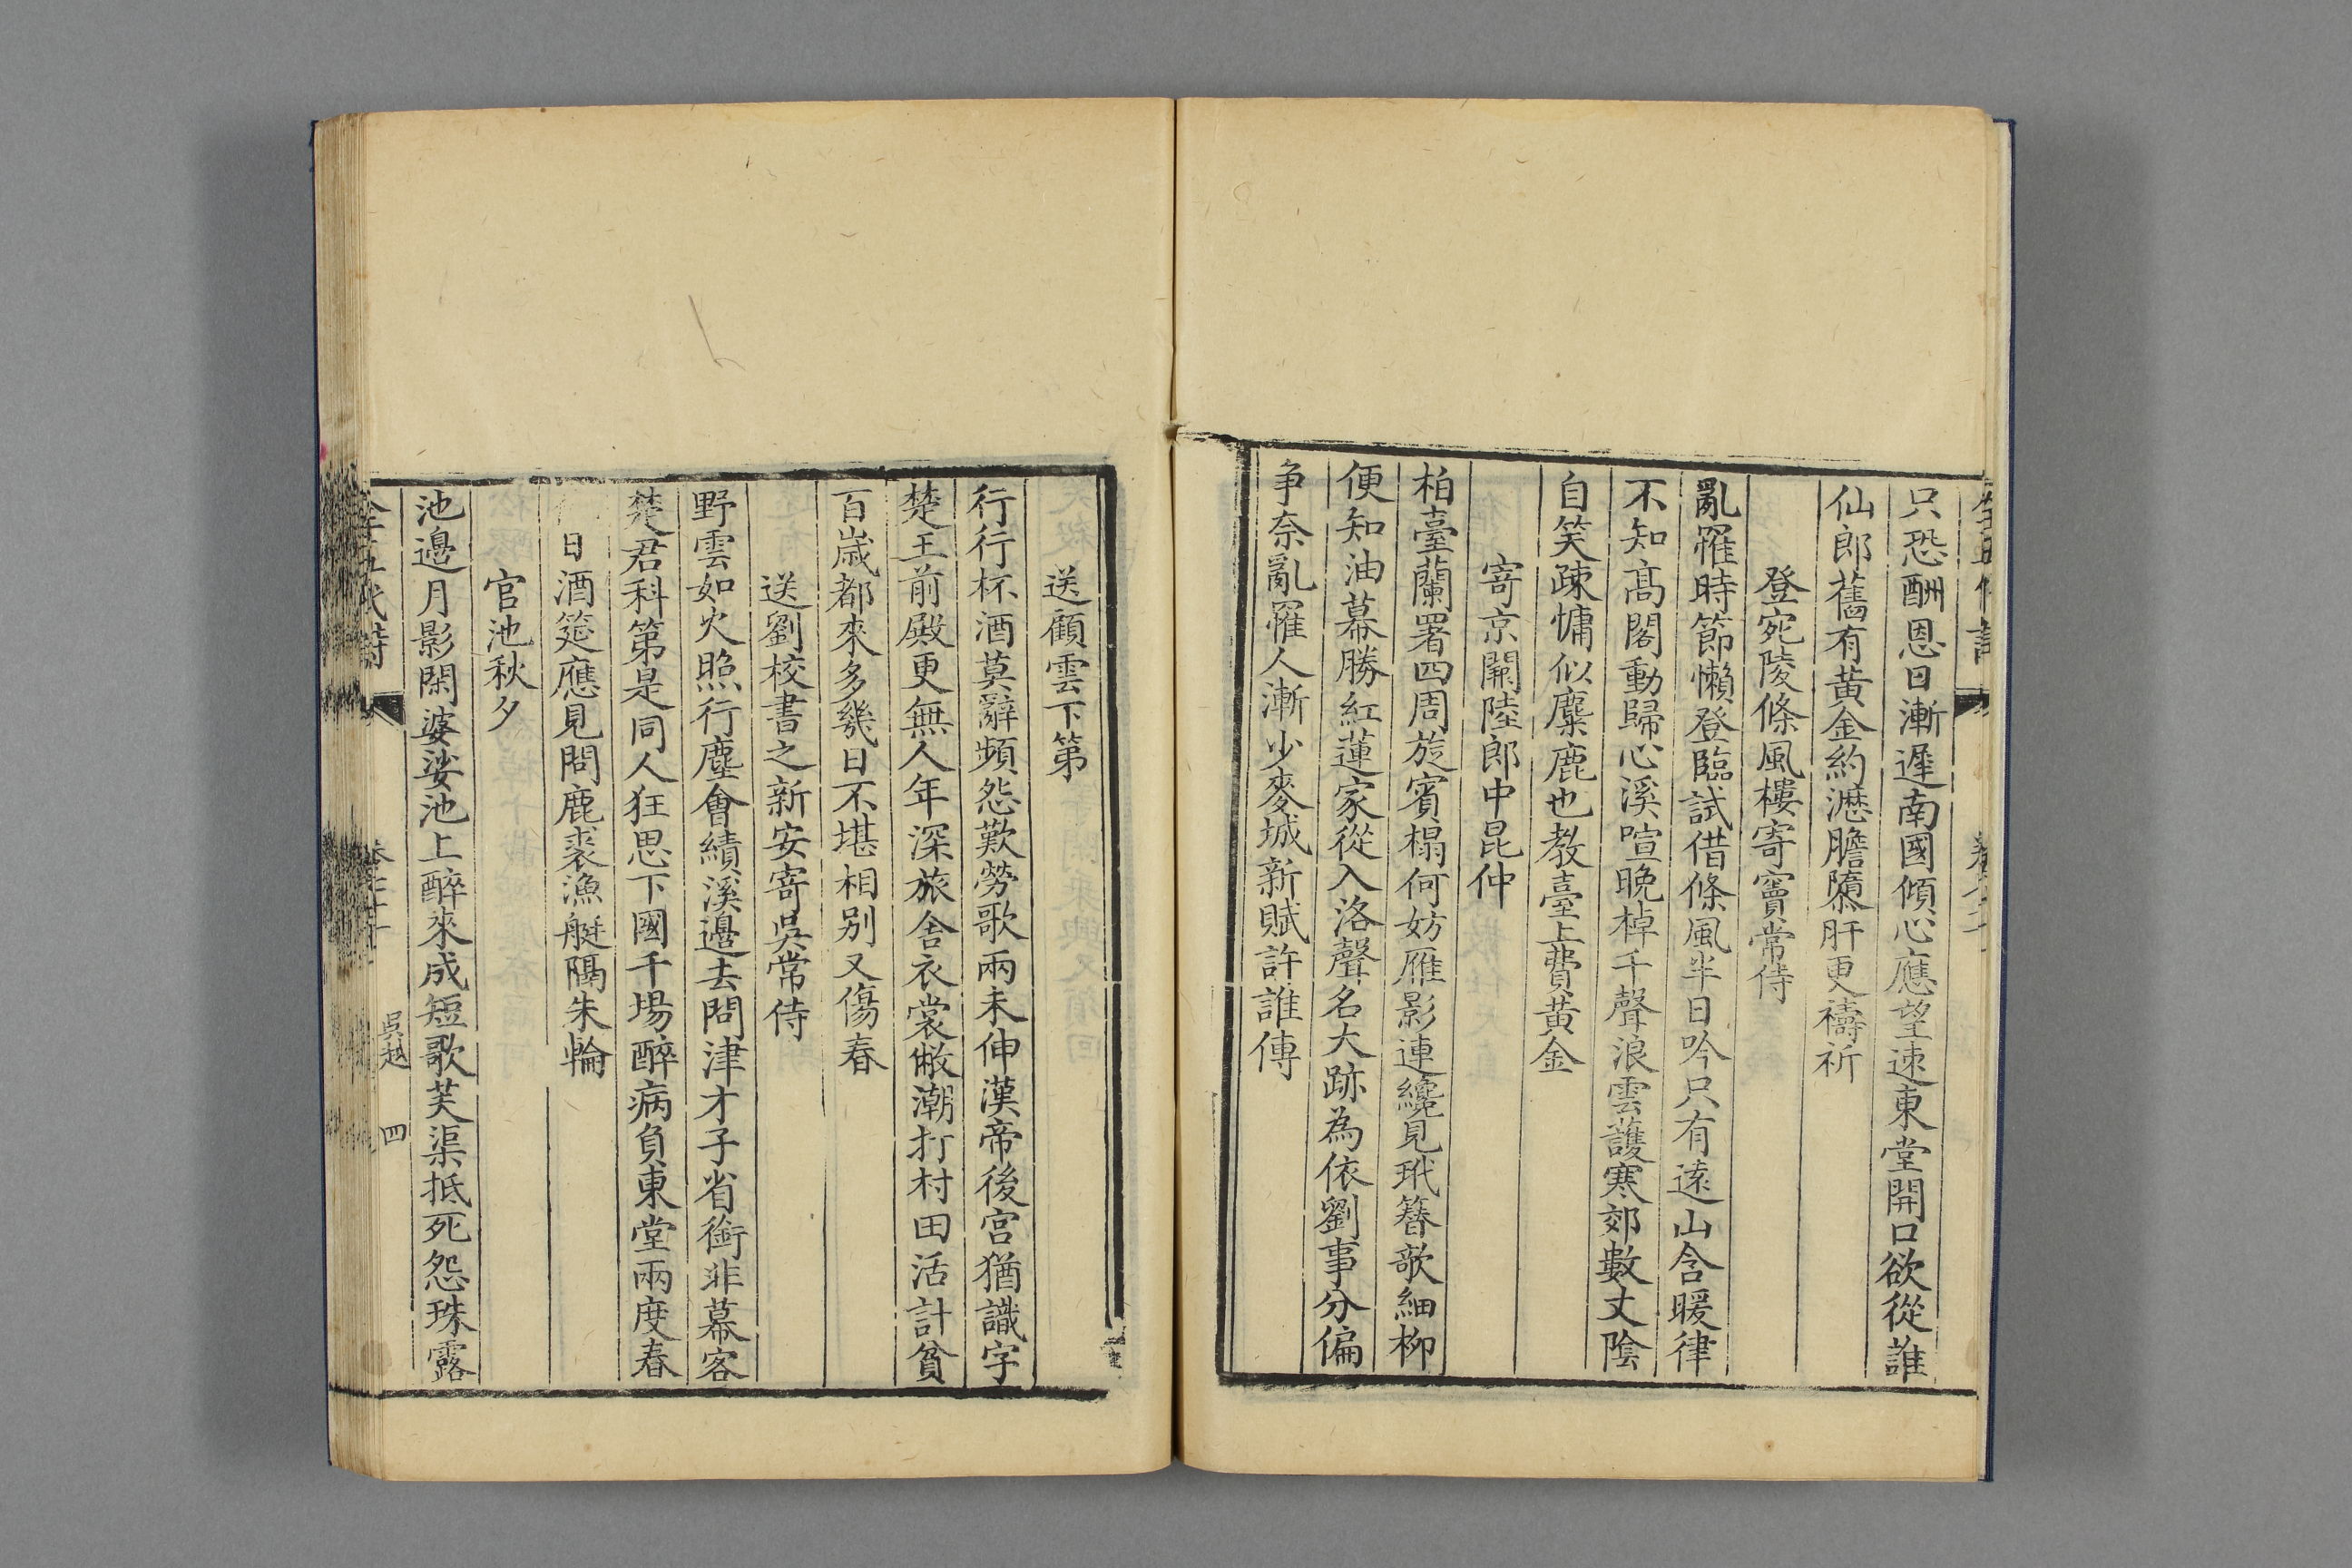 只恐酬恩日漸遲南國傾心應望速東堂開口欲從誰
仙郎舊有黃金約瀝膽隳肝更禱祈
登宛陵條風樓寄竇常侍
亂罹時節懶登臨試借條風半日吟只有遠山含暖律
不知高閣動歸心溪喧晚棹千聲浪雲護寒郊數丈陰
自笑疎慵似麋鹿也教臺上費黃金
寄京闕陸郎中昆仲
柏臺蘭署四周旋賓榻何妨雁影連纔見玳簪歌細柳
便知油幕勝紅蓮家從入洛聲名大跡為依劉事分偏
爭奈亂罹人漸少麥城新賦許誰傳
送顧雲下第
行行杯酒莫辭頻怨歎勞歌兩未伸漢帝後宮猶識字
楚王前殿更無人年深旅舍衣裳敝潮打村田活計貧
百歲都來多幾日不堪相別又傷春
送劉校書之新安寄吳常侍
野雲如火照行塵會績溪邊去問津才子省銜非幕客
楚君科第是同人狂思下國千場醉病負東堂兩度春
日酒筵應見問鹿裘漁艇隔朱輪
官池秋夕
池邊月影閑婆娑池上醉來成短歌芙渠抵死怨珠露
全五代詩
吳越
四